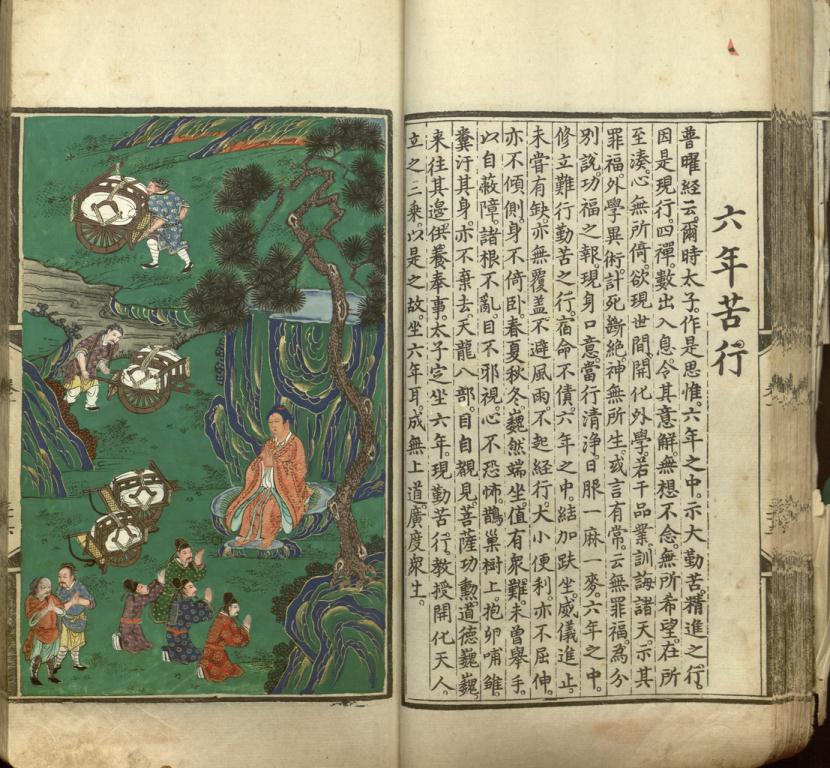 六年苦行
普曜經云。爾時太子。作是思惟。六年之中。示大勤苦。精進之行。
因是現行。四禪。數出入息。令其意解。無想不念。無所希望。在所
至湊。心無所倚。欲現世間。開化外學。若干品業。訓誨諸天。示其
罪福。外學異術。計死斷絕。神無所生。或言有常。云無罪福。為分
別說。功福之報。現身口意。當行清淨。日服一麻一麥。六年之中。
修立難行勤苦之行。宿命不債。六年之中。結加趺坐。威儀進止。
未嘗有缺。亦無覆蓋。不避風雨。不起經行。大小便利。亦不屈伸。
亦不傾側。身不倚臥。春夏秋冬。巍然端坐。值有眾難。未曾舉手。
以自蔽障。諸根不亂。目不邪視。心不恐怖。鵲巢樹上。抱卵哺雛。
糞汙其身。亦不棄去。天龍八部。目自覩見。菩薩功勳。道德巍巍。
來往其邊。供養奉事。太子定坐六年。現勤苦行。教授開化天人。
立之三乘。以是之故。坐六年耳。成無上道。廣度眾生。